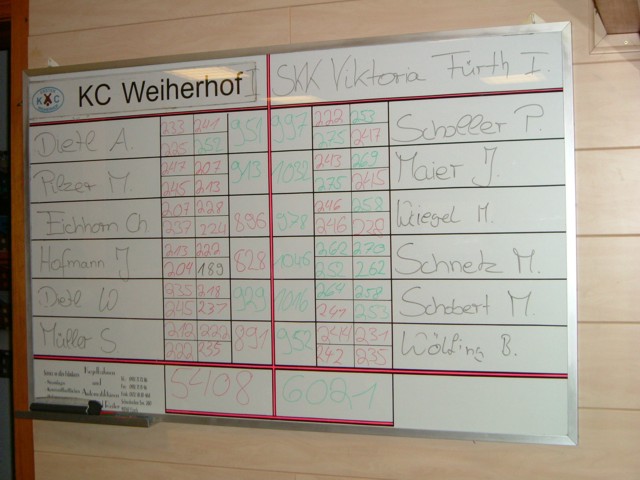 KC
KC Weiherhof SKK Viktoria Fürth I.
Dietl A. 233 241 951 997 222 253 Scholler P.
225 252 275 247
Pilzer M. 247 207 913 1032 243 269 Maier J.
245 213 275 245
Eichhorn Ch 207 228 896 978 246 258 Weigel M.
237 224 246 228
Hofmann J 213 222 828 1046 262 270 Schnetz M.
204 189 252 262
Dietl W 235 218 929 1016 264 258 Schobert M.
245 237 241 253
Müller S 212 222 891 952 244 231 Wölding B.
222 235 242 235
Kegelbahnen
und
5408 6021